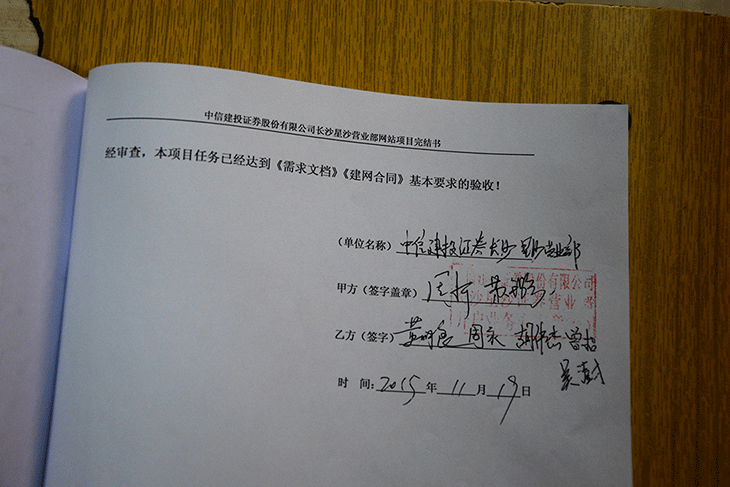 中信建投证券股份有限公司长沙星沙营业部网站项目完结书
经审查，本项目任务已经达到《需求文档》《建网合同》基本要求的验收！
（单位名称）中信建投证券长沙星沙营业部
甲方（签字盖章）
股份有限公司
营业
乙方（签字）
时 间：2015年11月19日